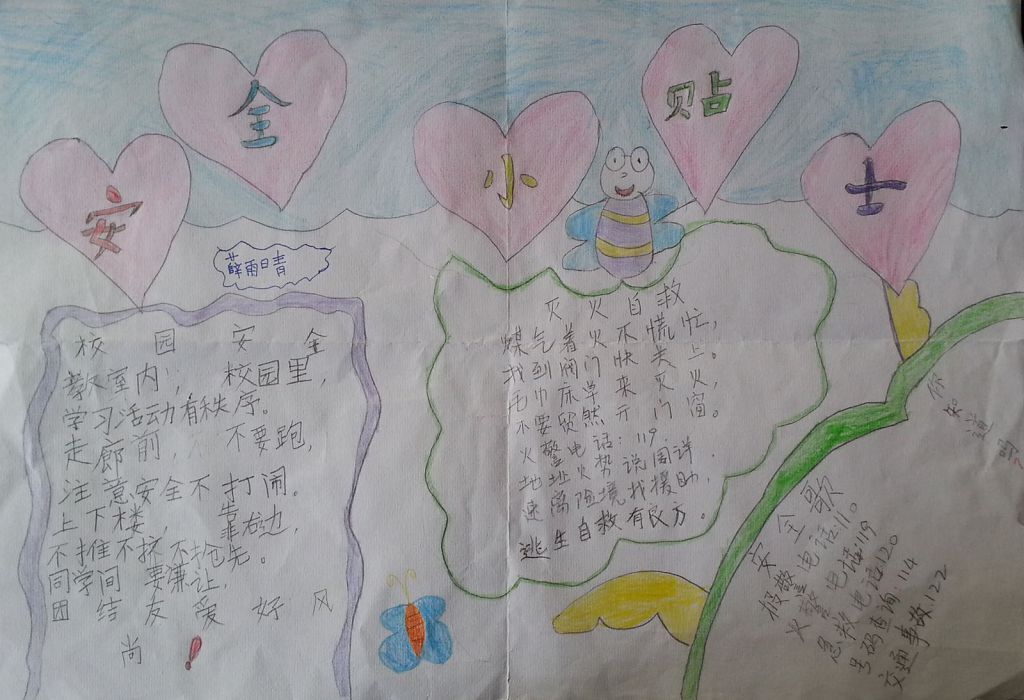 安全小贴士
薛雨晴
校园安全
教室内，校园里，
学习活动有秩序。
走廊前不要跑，
注意安全不打闹。
上下楼，靠右边，
不推不挤不抢先。
同学间要谦让，
团结友爱好风
尚！
灭火自救
煤气着火不慌忙，
找到阀门快关上。
毛巾床单来灭火，
不要贸然开门窗。
火警电话：119
地址火势说周详．
速离险境找援助，
逃生自救有良方。
你知道吗？
安全歌
报警电话：110
火警电话：119
急救电话120
号码查询：114
交通事故：122